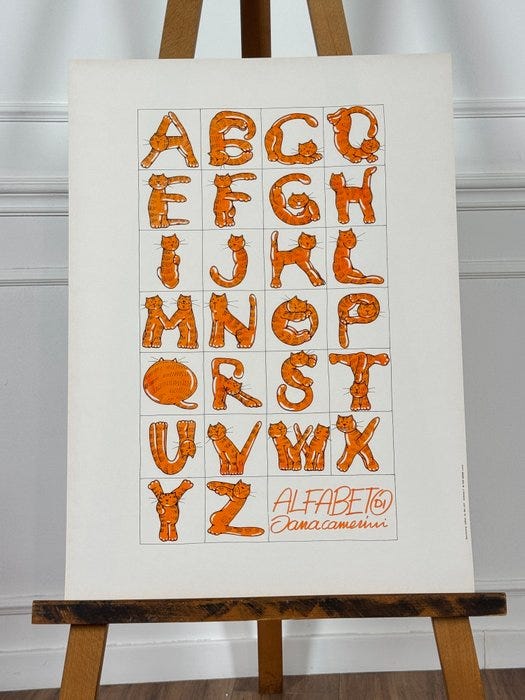 A B C D
E F G H
I J K L
M N O P
Q R S T
U V W X
Y Z
ALFABETO DI
Danacamerini